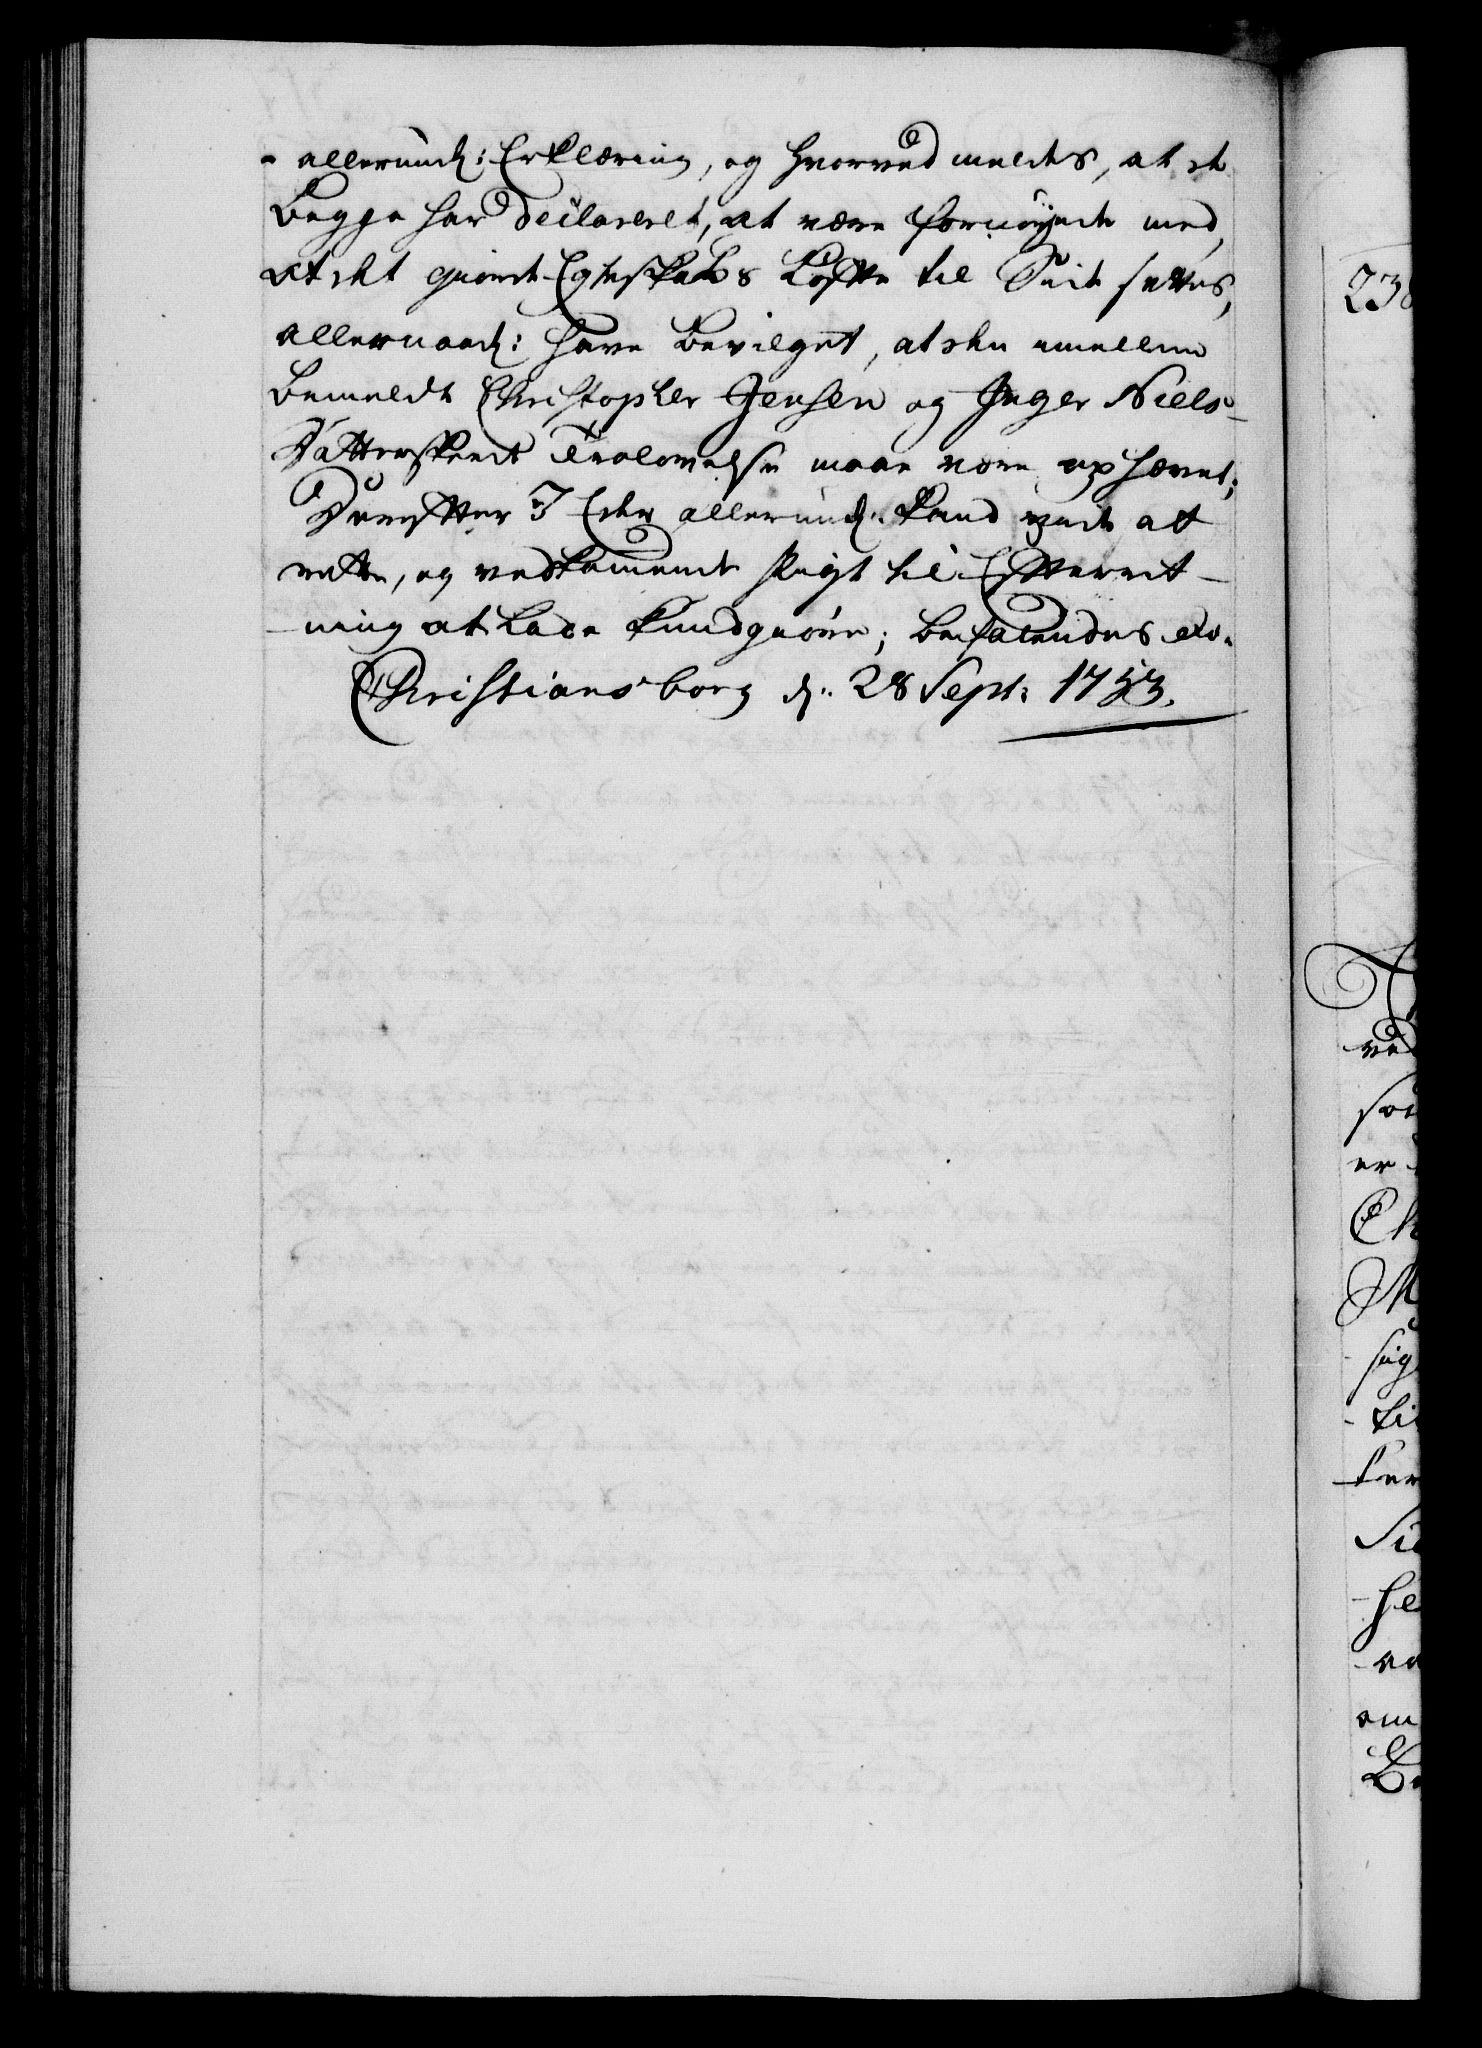 - allerund: Erklæring, og hvorved meldes, at de
begge har declareret, at være fornøyede med,
at det giorde Egteskabs Løfte til Side settes,
allernaad: have bevilget, at den imellem
bemeldte Christopher Jensen og Inger Niels-
Datter skeede Trolovelse maae være ophævet;
Derefter I Eder allerund: kand vide at
rette, og vedkommende sligt til Efterret-
-ning at lade kundgiøre; befalendes etc.
Christiansborg d: 28 Sept: 1753.
238
ved
er